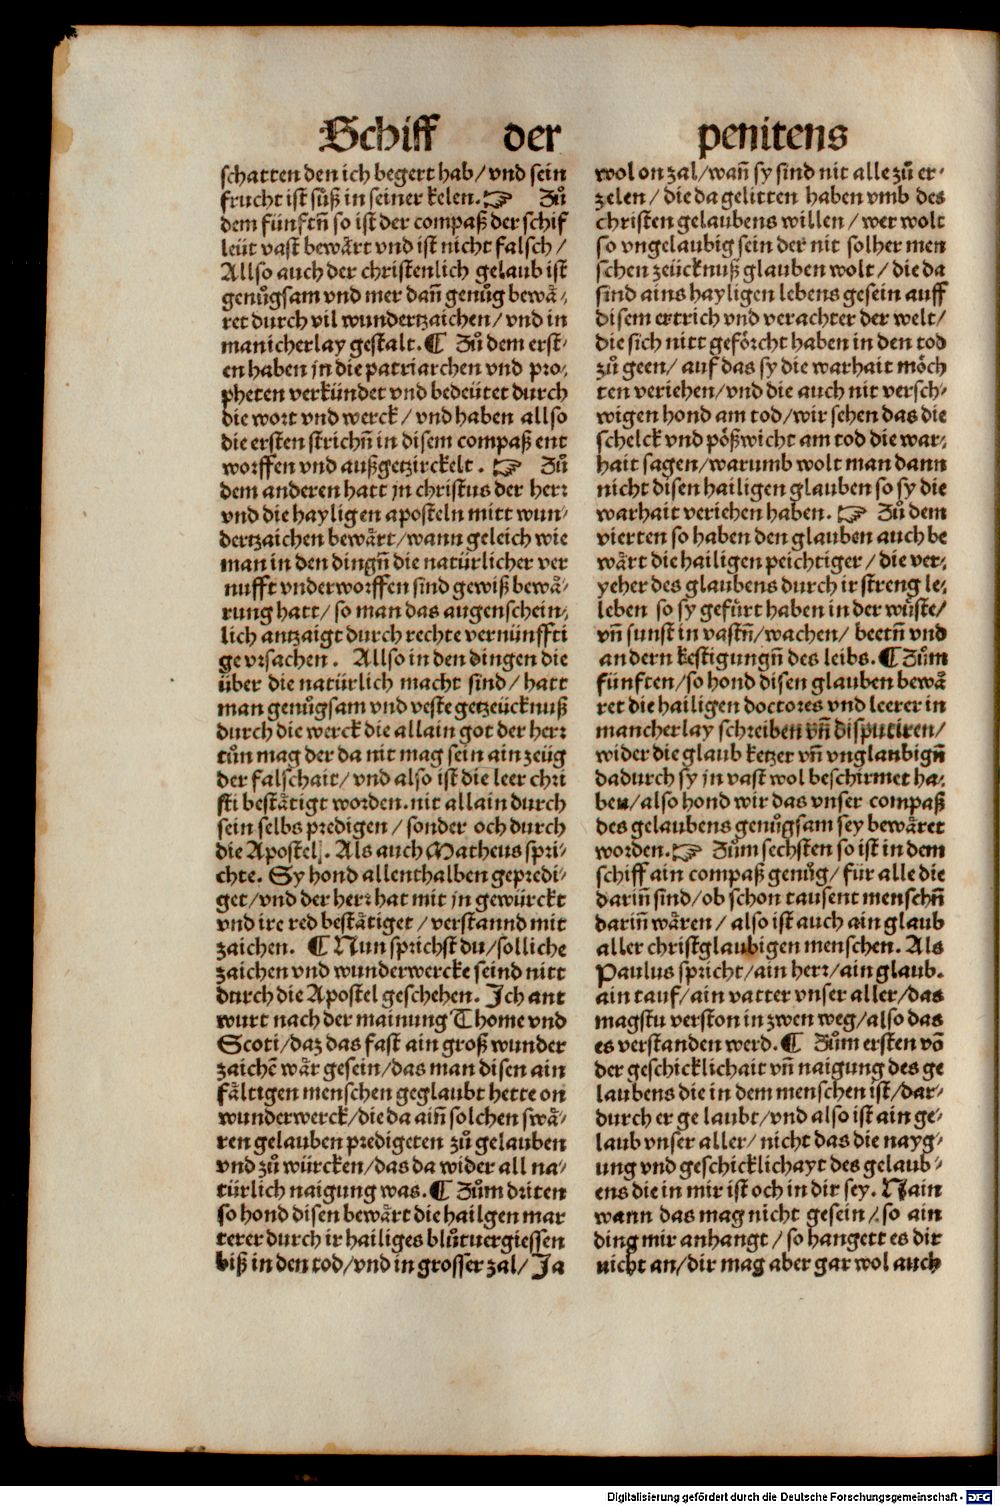 Schiff der penitens
schatten den ich begert hab/ vnd sein
frucht ist süß in seiner kelen.☞ Zů
dem fünftn̄ so ist der compaß der schif
leüt vast bewaͤrt vnd ist nicht falsch /
Allso auch der christenlich gelaub ist
genůgsam vnd mer dañ genůg bewaͤ⸗
ret durch vil wundertzaichen/ vnd in
manicherlay gestalt.¶ Zů dem erst⸗
en haben jn die patriarchen vnd pro⸗
pheten verkündet vnd bedeütet durch
die wort vnd werck / vnd haben allso
die ersten strichn̄ in disem compaß ent
worffen vnd außgetzirckelt . ☞ Zů
dem anderen hatt jn christus der herꝛ
vnd die hayligen aposteln mitt wun⸗
dertzaichen bewaͤrt/ wann geleich wie
man in den dingn̄ die natürlicher ver
nufft vnderworffen sind gewiß bewaͤ⸗
rung hatt/ so man das augenschein⸗
lich antzaigt durch rechte vernünffti
ge vrsachen . Allso in den dingen die
über die natürlich macht sind/ hatt
man genůgsam vnd veste getzeücknuß
durch die werck die allain got der herꝛ
tůn mag der da nit mag sein ain zeüg
der falschait/ vnd also ist die leer chri
sti bestaͤtigt worden. nit allain durch
sein selbs predigen / sonder och durch
die Apostel. Als auch Matheus spri⸗
chte. Sy hond allenthalben gepredi⸗
get/ vnd der herꝛ hat mit jn gewürckt
vnd ire red bestaͤtiget / verstannd mit
zaichen. ¶ Nun sprichst du/ solliche
zaichen vnd wunderwercke seind nitt
durch die Apostel geschehen. Ich ant
wurt nach der mainung Thome vnd
Scoti/ daz das fast ain groß wunder
zaichē waͤr gesein/ das man disen ain
faͤltigen menschen geglaubt hette on
wunderwerck/ die da aiñ solchen swaͤ⸗
ren gelauben predigeten zů gelauben
vnd zů würcken/ das da wider all na⸗
türlich naigung was.¶ Zům driten
so hond disen bewaͤrt die hailgen mar
terer durch ir hailiges blůtuergiessen
biß in den tod/ vnd in grosser zal/ Ja
wol on zal/ wañ sy sind nit alle zů er⸗
zelen / die da gelitten haben vmb des
christen gelaubens willen / wer wolt
so vngelaubig sein der nit solher men
schen zeücknuß glauben wolt / die da
sind ains hayligen lebens gesein auff
disem ertrich vnd verachter der welt/
die sich nitt gefoͤrcht haben in den tod
zů geen/ auf das sy die warhait moͤch
ten veriehen/ vnd die auch nit versch⸗
wigen hond am tod/ wir sehen das die
schelck vnd poͤßwicht am tod die war⸗
hait sagen/ warumb wolt man dann
nicht disen hailigen glauben so sy die
warhait veriehen haben. ☞ Zů dem
vierten so haben den glauben auch be
waͤrt die hailigen peichtiger / die ver⸗
yeher des glaubens durch ir streng le⸗
leben so sy gefürt haben in der wůste/
vñ sunst in vastn̄/ wachen/ beetn̄ vnd
andern kestigungn̄ des leibs.¶ Zům
fünften/ so hond disen glauben bewaͤ
ret die hailigen doctores vnd leerer in
mancherlay schreiben vñ disputiren/
wider die glaub ketzer vñ vnglaubign̄
dadurch sy jn vast wol beschirmet ha⸗
ben/ also hond wir das vnser compaß
des gelaubens genůgsam sey bewaͤret
worden.☞ Zům sechsten so ist in dem
schiff ain compaß genůg/ für alle die
dariñ sind/ ob schon tausent menschn̄
dariñ waͤren / also ist auch ain glaub
aller christglaubigen menschen. Als
Paulus spricht/ ain herꝛ/ ain glaub.
ain tauf/ ain vatter vnser aller/ das
magstu verston in zwen weg/ also das
es verstanden werd.¶ Zům ersten võ
der geschicklichait vñ naigung des ge
laubens die in dem menschen ist/ dar⸗
durch er ge laubt/ vnd also ist ain ge⸗
laub vnser aller/ nicht das die nayg⸗
ung vnd geschicklichayt des gelaub⸗
ens die in mir ist och in dir sey. Nain
wann das mag nicht gesein /. so ain
ding mir anhangt / so hangett es dir
nicht an/ dir mag aber gar wol auch
Digitalisierung gefördert durch die Deutsche Forschungsgemeinschaft - DFG